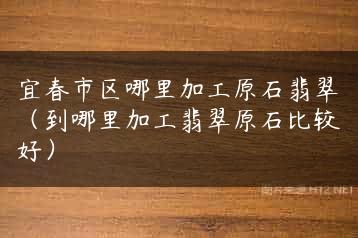 宜春市区哪里加工原石翡翠
（到哪里加工翡翠原石比较
好）